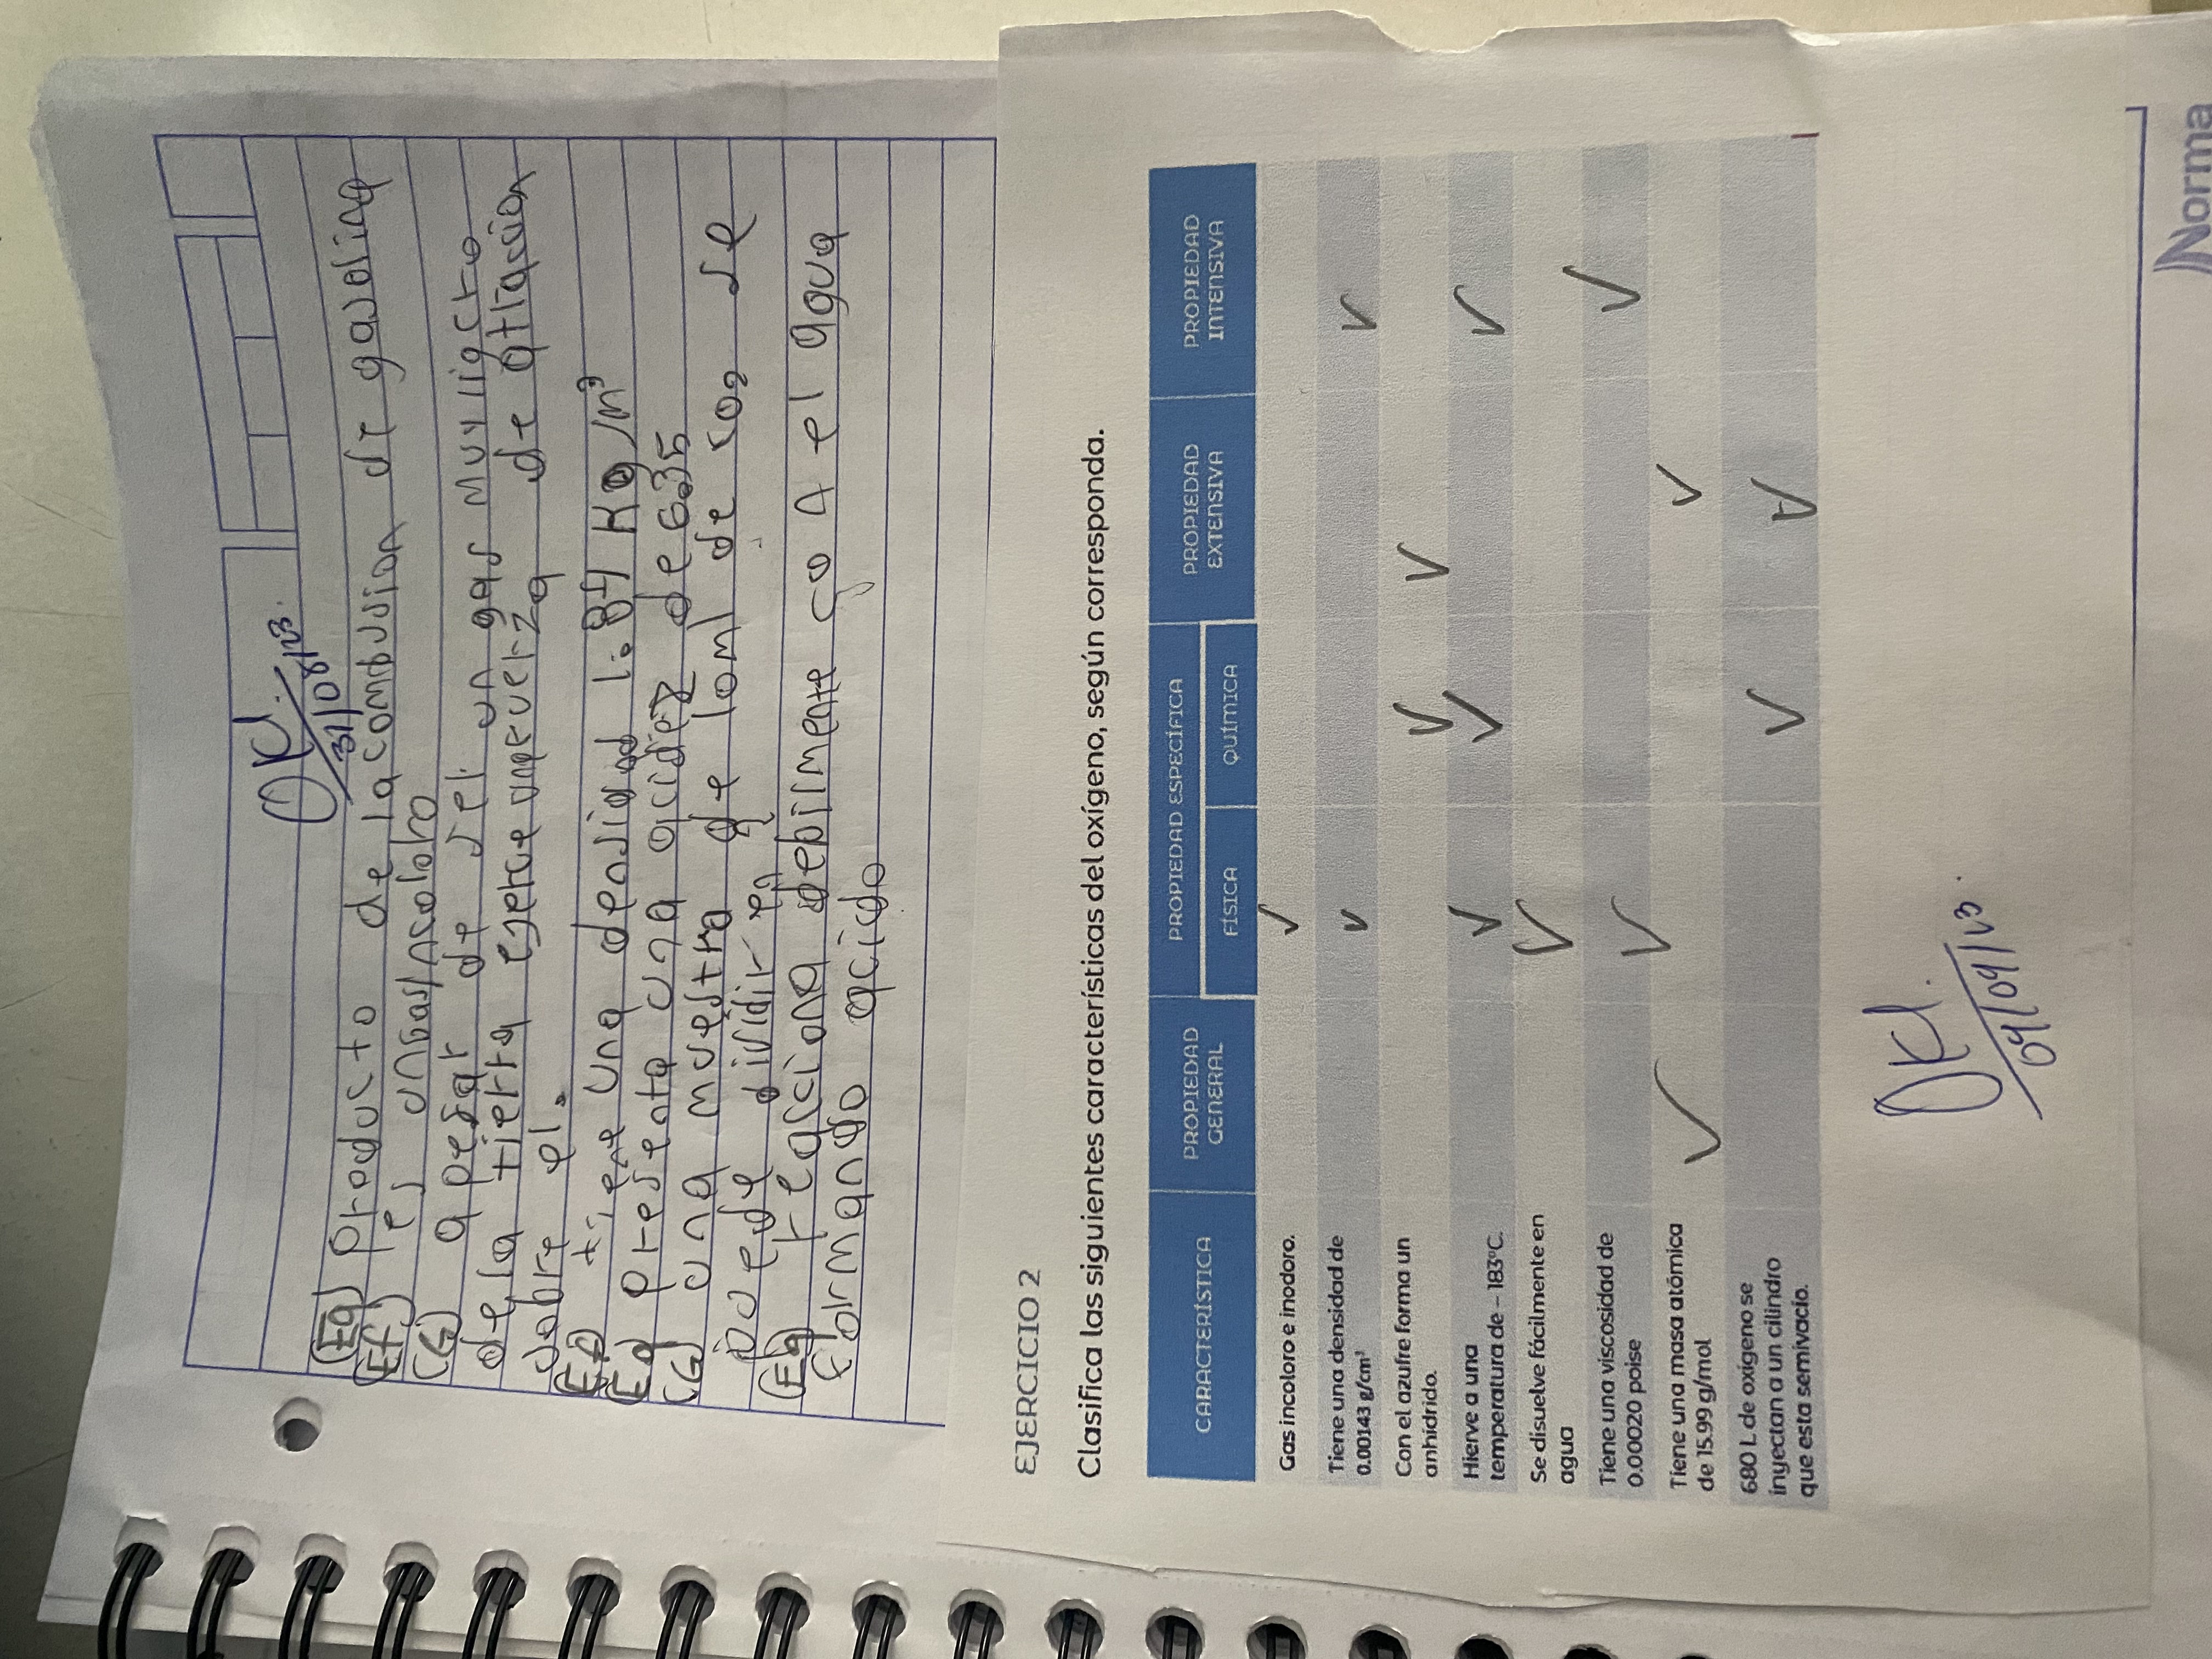 OK.
31/08/23.
(Eq) Producto de la combusion de gasolina
(Ef) es un gas incoloro
(G) a pesar de ser un gas muy ligero
de la tierra ejerce una fuerza de atracion
sobre el.
(Ef) tiene una densidad 1.84 Kg/m³
(Eq) presenta una acidez de 6.35
(G) una muestra de 10ml de co₂ se
puede dividir en
(Eq) reacciona debilmente co n el agua
formando acido
EJERCICIO 2
Clasifica las siguientes características del oxígeno, según corresponda.
CARACTERÍSTICA
PROPIEDAD GENERAL
PROPIEDAD ESPECÍFICA
FÍSICA
QUÍMICA
PROPIEDAD EXTENSIVA
PROPIEDAD INTENSIVA
Gas incoloro e inodoro. ✓
Tiene una densidad de ✓ ✓
0.00143 g/cm³
Con el azufre forma un ✓ ✓
anhídrido.
Hierve a una ✓ ✓ ✓
temperatura de – 183°C.
Se disuelve fácilmente en ✓
agua
Tiene una viscosidad de ✓ ✓
0.00020 poise
Tiene una masa atómica ✓ ✓
de 15.99 g/mol
680 L de oxígeno se ✓ ✓
inyectan a un cilindro
que esta semivacio.
OK.
04/09/23.
Norma